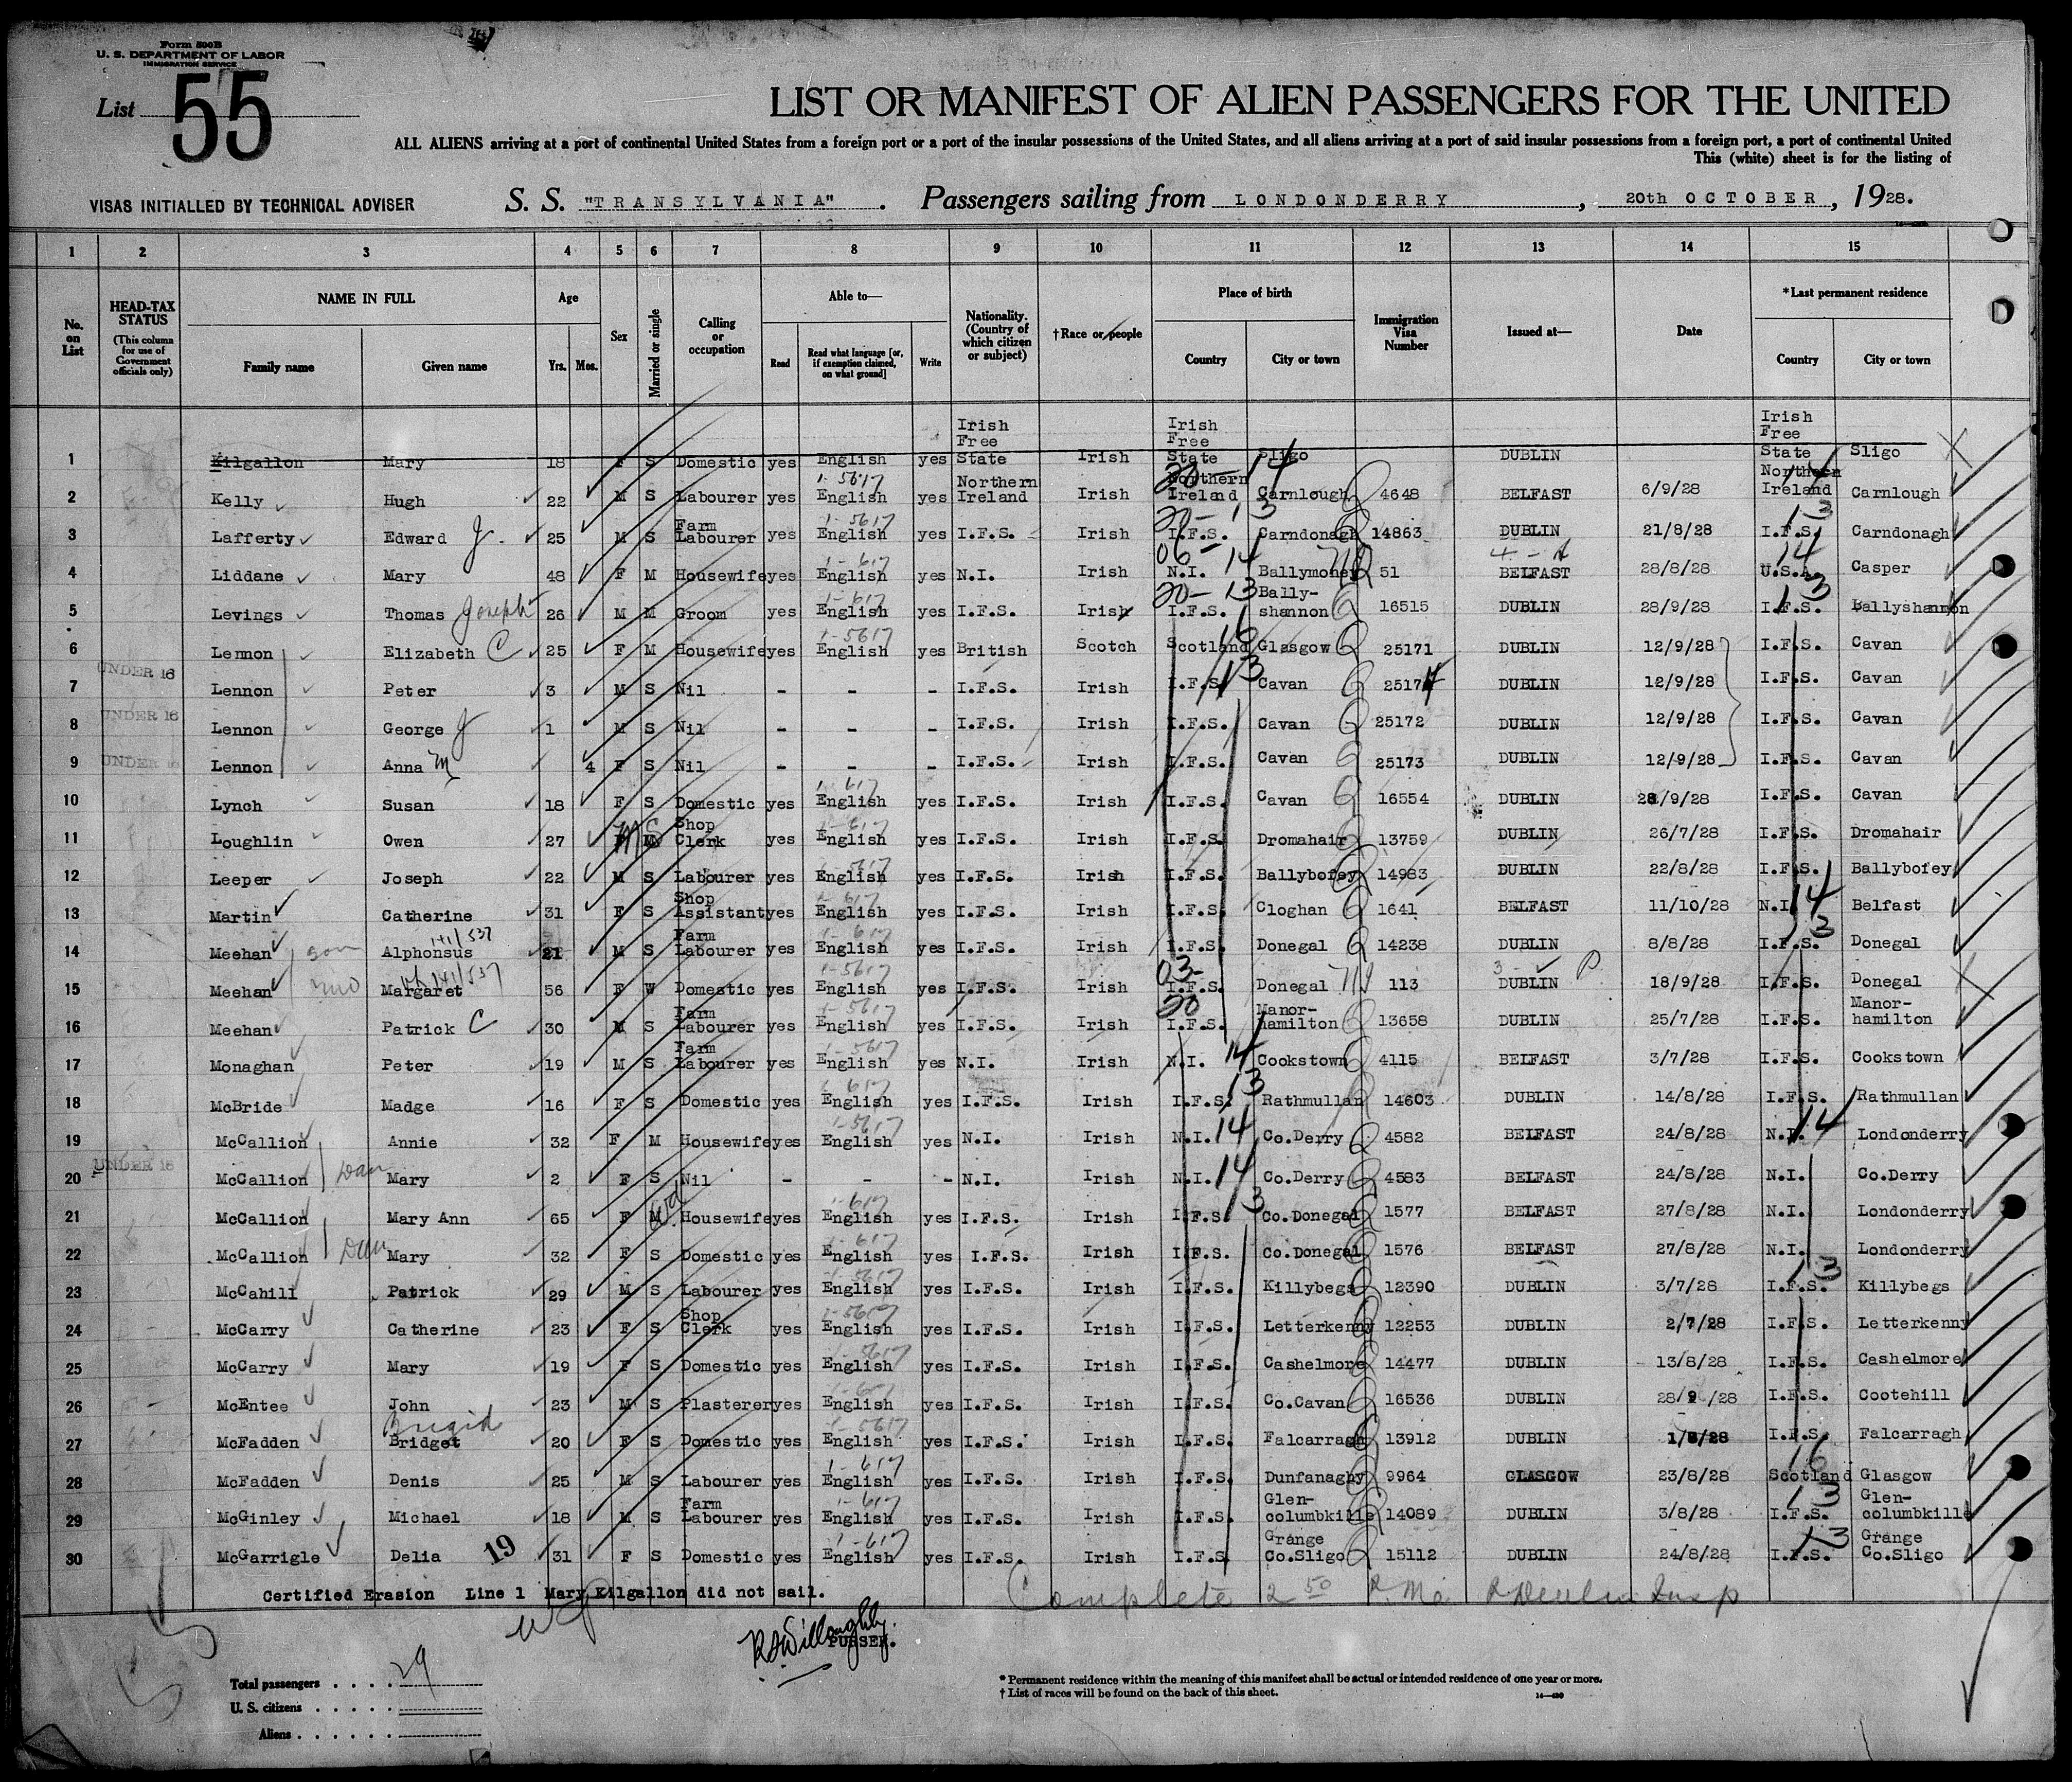 Form 500B
U. S. DEPARTMENT OF LABOR
IMMIGRATION SERVICE
List 55
LIST OR MANIFEST OF ALIEN PASSENGERS FOR THE UNITED
ALL ALIENS arriving at a port of continental United States from a foreign port or a port of the insular possessions of the United States, and all aliens arriving at a port of said insular possessions from a foreign port, a port of continental United
This (white) sheet is for the listing of
VISAS INITIALLED BY TECHNICAL ADVISER S. S. "TRANSYLVANIA" . Passengers sailing from LONDONDERRY , 20th OCTOBER , 1928.
1 2 3 4 5 6 7 8 9 10 11 12 13 14 15
No. on List HEAD-TAX STATUS (This column for use of Government officials only) NAME IN FULL Family name Given name Age Yrs. Mos. Sex Married or single Calling or occupation Able to— Read Read what language [or, if exemption claimed, on what ground] Write Nationality. (Country of which citizen or subject) †Race or people Place of birth Country City or town Immigration Visa Number Issued at— Date *Last permanent residence Country City or town
1 Kilgallon Mary 18 F S Domestic yes English yes Irish Free State Irish Irish Free State Sligo DUBLIN Irish Free State Sligo
2 Kelly Hugh 22 M S Labourer yes English yes Northern Ireland Irish Northern Ireland Carnlough 4648 BELFAST 6/9/28 Northern Ireland Carnlough
3 Lafferty Edward J. 25 M S Farm Labourer yes English yes I.F.S. Irish I.F.S. Carndonagh 14863 DUBLIN 21/8/28 I.F.S. Carndonagh
4 Liddane Mary 48 F M Housewife yes English yes N.I. Irish N.I. Ballymoney 51 BELFAST 28/8/28 U.S.A. Casper
5 Levings Thomas Joseph 26 M M Groom yes English yes I.F.S. Irish I.F.S. Bally-shannon 16515 DUBLIN 28/9/28 I.F.S. Ballyshannon
6 Lennon Elizabeth C 25 F M Housewife yes English yes British Scotch Scotland Glasgow 25171 DUBLIN 12/9/28 I.F.S. Cavan
UNDER 16
7 Lennon Peter 3 M S Nil - - - I.F.S. Irish I.F.S. Cavan 25174 DUBLIN 12/9/28 I.F.S. Cavan
UNDER 16
8 Lennon George J 1 M S Nil - - - I.F.S. Irish I.F.S. Cavan 25172 DUBLIN 12/9/28 I.F.S. Cavan
UNDER 16
9 Lennon Anna M 4 F S Nil - - - I.F.S. Irish I.F.S. Cavan 25173 DUBLIN 12/9/28 I.F.S. Cavan
10 Lynch Susan 18 F S Domestic yes English yes I.F.S. Irish I.F.S. Cavan 16554 DUBLIN 28/9/28 I.F.S. Cavan
11 Loughlin Owen 27 M S Shop Clerk yes English yes I.F.S. Irish I.F.S. Dromahair 13759 DUBLIN 26/7/28 I.F.S. Dromahair
12 Leeper Joseph 22 M S Labourer yes English yes I.F.S. Irish I.F.S. Ballybofey 14983 DUBLIN 22/8/28 I.F.S. Ballybofey
13 Martin Catherine 31 F S Shop Assistant yes English yes I.F.S. Irish I.F.S. Cloghan 1641 BELFAST 11/10/28 N.I. Belfast
14 Meehan son Alphonsus 141/537 21 M S Farm Labourer yes English yes I.F.S. Irish I.F.S. Donegal 14238 DUBLIN 8/8/28 I.F.S. Donegal
15 Meehan Margaret 141/537 56 F W Domestic yes English yes I.F.S. Irish I.F.S. Donegal 113 DUBLIN 18/9/28 I.F.S. Donegal
16 Meehan Patrick C 30 M S Farm Labourer yes English yes I.F.S. Irish I.F.S. Manor-hamilton 13658 DUBLIN 25/7/28 I.F.S. Manor-hamilton
17 Monaghan Peter 19 M S Farm Labourer yes English yes N.I. Irish N.I. Cookstown 4115 BELFAST 3/7/28 I.F.S. Cookstown
18 McBride Madge 16 F S Domestic yes English yes I.F.S. Irish I.F.S. Rathmullan 14603 DUBLIN 14/8/28 I.F.S. Rathmullan
19 McCallion Annie 32 F M Housewife yes English yes N.I. Irish N.I. Co.Derry 4582 BELFAST 24/8/28 N.I. Londonderry
UNDER 16
20 McCallion Dau Mary 2 F S Nil - - - N.I. Irish N.I. Co.Derry 4583 BELFAST 24/8/28 N.I. Co.Derry
21 McCallion Mary Ann 65 F M Wd Housewife yes English yes I.F.S. Irish I.F.S. Co.Donegal 1577 BELFAST 27/8/28 N.I. Londonderry
22 McCallion Dau Mary 32 F S Domestic yes English yes I.F.S. Irish I.F.S. Co.Donegal 1576 BELFAST 27/8/28 N.I. Londonderry
23 McCahill Patrick 29 M S Labourer yes English yes I.F.S. Irish I.F.S. Killybegs 12390 DUBLIN 3/7/28 I.F.S. Killybegs
24 McCarry Catherine 23 F S Shop Clerk yes English yes I.F.S. Irish I.F.S. Letterkenny 12253 DUBLIN 2/7/28 I.F.S. Letterkenny
25 McCarry Mary 19 F S Domestic yes English yes I.F.S. Irish I.F.S. Cashelmore 14477 DUBLIN 13/8/28 I.F.S. Cashelmore
26 McEntee John 23 M S Plasterer yes English yes I.F.S. Irish I.F.S. Co.Cavan 16536 DUBLIN 28/9/28 I.F.S. Cootehill
27 McFadden Brigid Bridget 20 F S Domestic yes English yes I.F.S. Irish I.F.S. Falcarragh 13912 DUBLIN 1/8/28 I.F.S. Falcarragh
28 McFadden Denis 25 M S Labourer yes English yes I.F.S. Irish I.F.S. Dunfanaghy 9964 GLASGOW 23/8/28 Scotland Glasgow
29 McGinley Michael 18 M S Farm Labourer yes English yes I.F.S. Irish I.F.S. Glen-columbkille 14089 DUBLIN 3/8/28 I.F.S. Glen-columbkille
30 McGarrigle Delia 19 31 F S Domestic yes English yes I.F.S. Irish I.F.S. Grange Co.Sligo 15112 DUBLIN 24/8/28 I.F.S. Grange Co.Sligo
Certified Erasion Line 1 Mary Kilgallon did not sail.
Complete 2 50
RSWilloughby
PURSER.
Total passengers . . . . 29
U. S. citizens . . . . .
Aliens . . . . . .
* Permanent residence within the meaning of this manifest shall be actual or intended residence of one year or more.
† List of races will be found on the back of this sheet.